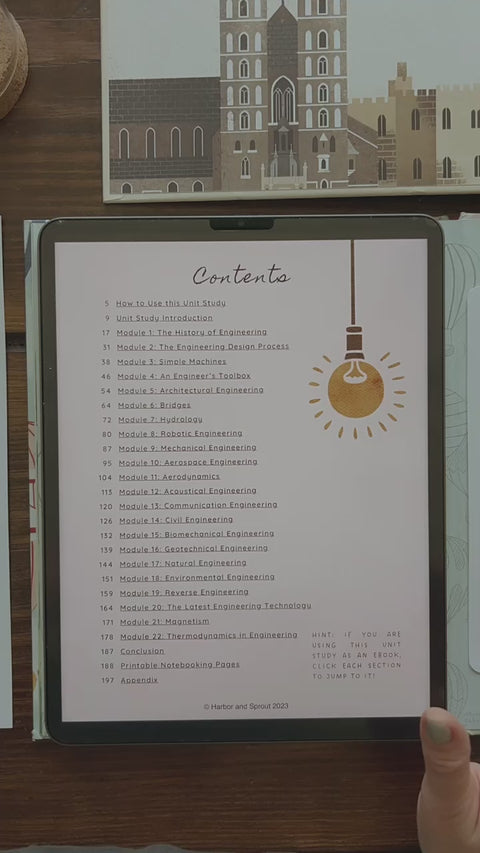 Contents
5 How to Use this Unit Study
9 Unit Study Introduction
17 Module 1: The History of Engineering
31 Module 2: The Engineering Design Process
38 Module 3: Simple Machines
46 Module 4: An Engineer's Toolbox
54 Module 5: Architectural Engineering
64 Module 6: Bridges
72 Module 7: Hydrology
80 Module 8: Robotic Engineering
87 Module 9: Mechanical Engineering
95 Module 10: Aerospace Engineering
104 Module 11: Aerodynamics
113 Module 12: Acoustical Engineering
120 Module 13: Communication Engineering
126 Module 14: Civil Engineering
132 Module 15: Biomechanical Engineering
139 Module 16: Geotechnical Engineering
144 Module 17: Natural Engineering
151 Module 18: Environmental Engineering
159 Module 19: Reverse Engineering
164 Module 20: The Latest Engineering Technology
171 Module 21: Magnetism
178 Module 22: Thermodynamics in Engineering
187 Conclusion
188 Printable Notebooking Pages
197 Appendix
HINT: IF YOU ARE
USING THIS UNIT
STUDY AS AN EBOOK,
CLICK EACH SECTION
TO JUMP TO IT!
© Harbor and Sprout 2023